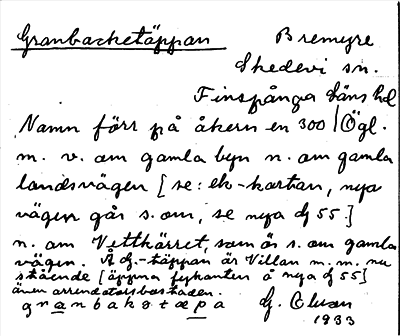 Granbacketäppan Bremyre
Skedevi sn.
Finspånga läns hd
Namn förr på åkern en 300 / Ögl.
m. v. om gamla byn n. om gamla
landsvägen [se: ek-kartan, nya
vägen går s. om, se nya 55.]
n. om Vettkärret, som är s. om gamla
vägen. Å -täppan är Villan m. m. nu
stående [öppna fyrkanten å nya 55]
även arrendatorsbostaden.
granbakstæpa
1933